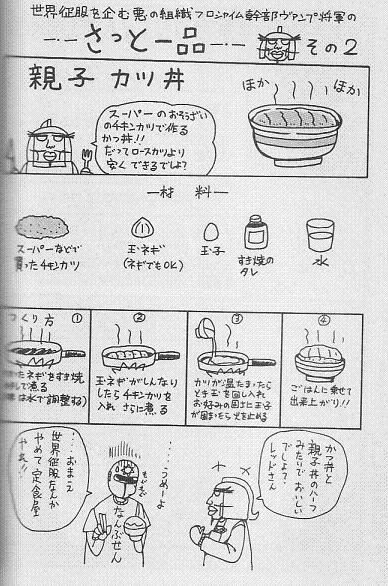 世界征服を企む悪の組織フロシャイム幹部ヴァンプ将軍の
さっと一品
その2
親子カツ丼
スーパーのおそうざい
のチキンカツで作る
かつ丼!!
だってロースカツより
安くできるでしょ?
ほか
ほか
材料
スーパーなどで
買ったチキンカツ
玉ネギ
(ネギでもOK)
玉子
すき焼の
タレ
水
つくり方
①
ネギをすき焼
煮る
は水で調整する)
②
玉ネギがしんなり
したらチキンカツを
入れ さらに煮る
③
カツが温まったら
とき玉を回し入れ
お好みの固さに玉子
が固まったら火を止める
④
ごはんに乗せて
出来上がり!!
かつ丼と
親子丼のハーフ
みたいでおいしい
でしょ?
レッドさん
……うめーよ
もぐもぐ
なんぶせん
……おまえ
世界征服なんか
やめて定食屋
やれ!!